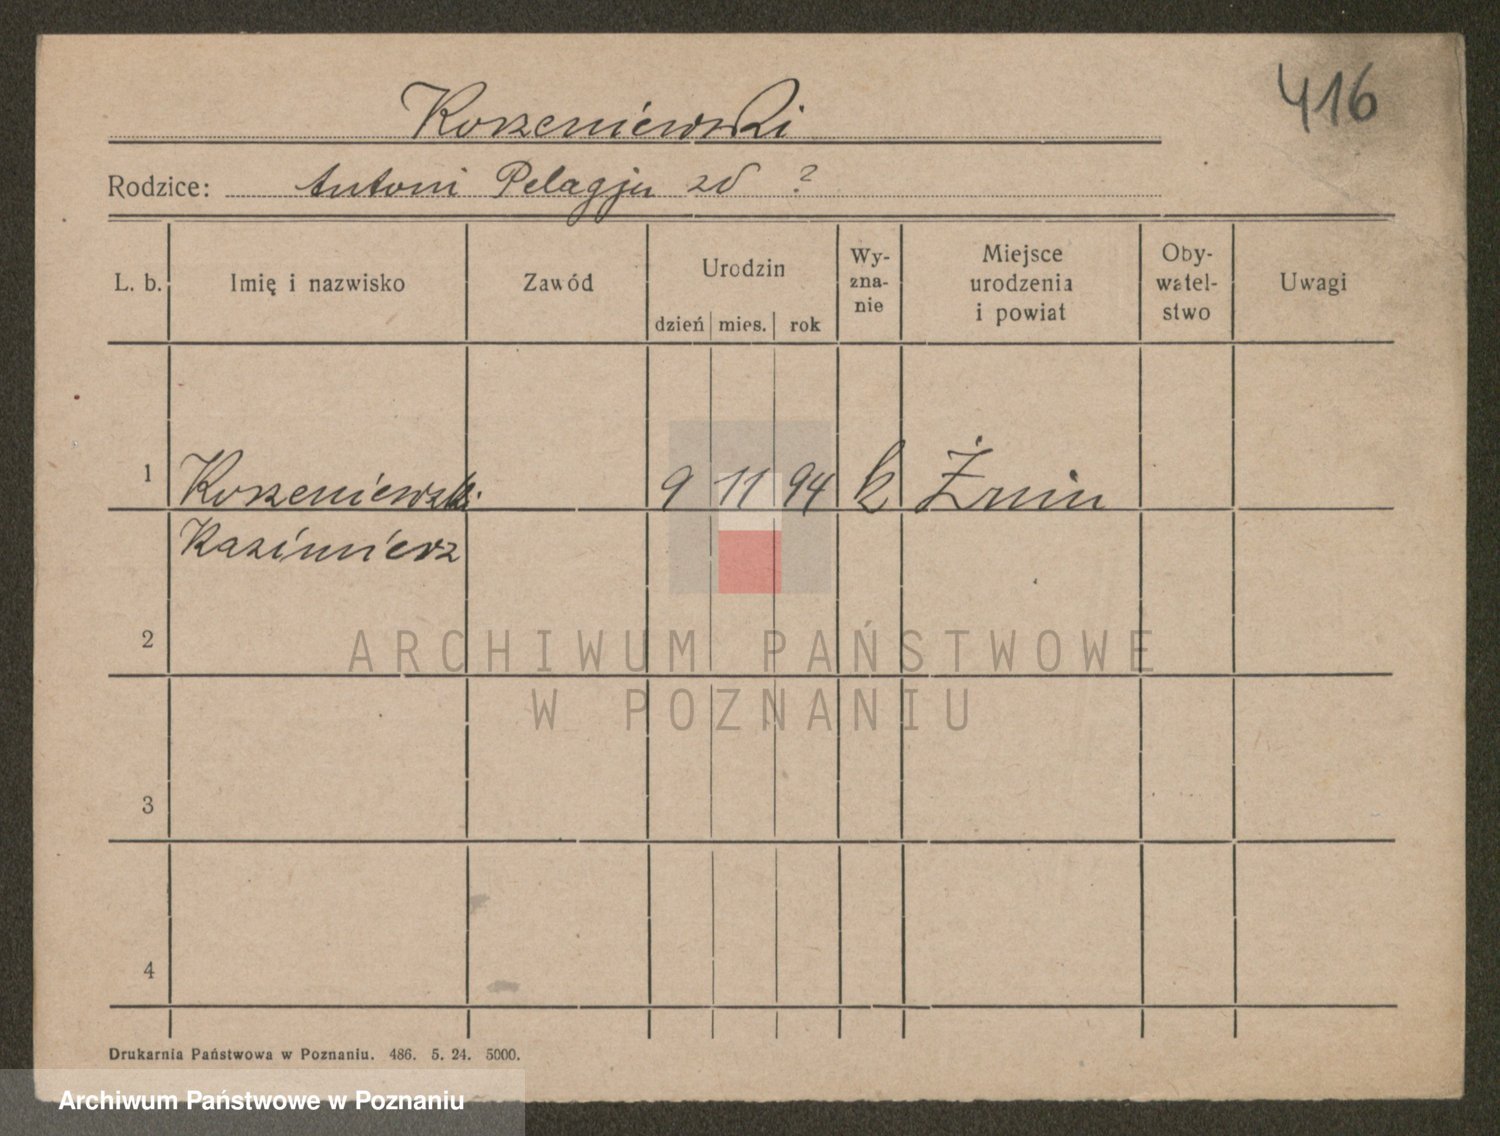 416
Korzeniewski
Rodzice: Antoni Pelagja zd ?
L. b. Imię i nazwisko Zawód Urodzin Wy- Miejsce Oby- Uwagi
zna- urodzenia watel-
nie i powiat stwo
dzień mies. rok
1 Korzeniewski 9 11 94 k Żnin
Kazimierz
2
ARCHIWUM PAŃSTWOWE
W POZNANIU
3
4
Drukarnia Państwowa w Poznaniu. 486. 5. 24. 5000.
Archiwum Państwowe w Poznaniu